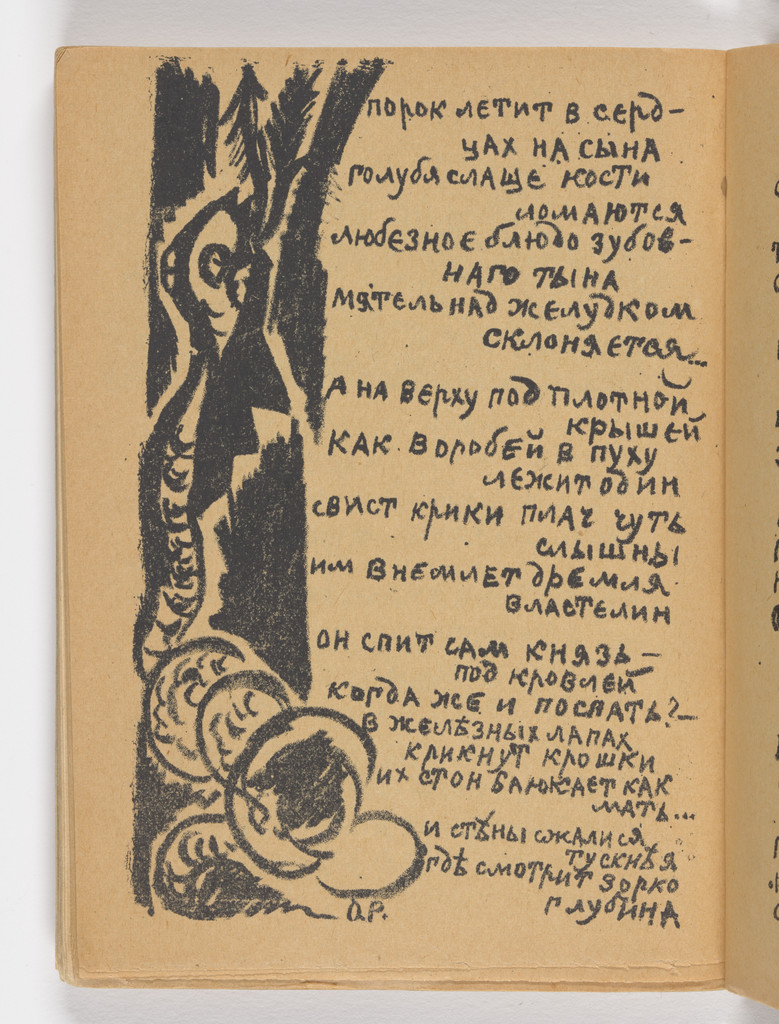 порок летит в серд-
цах на сына
голубя слаще кости
ломаются
любезное блюдо зубов-
наго тына
мятель над желудком
склоняется...
а на верху под плотной
крышей
как воробей в пуху
лежит один
свист крики плач чуть
слышны
им внемлет дремля
властелин
он спит сам князь—
под кровлей
когда же и поспать?—
в желѣзных лапах
крикнут крошки
их стон баюкает как
мать...
и стѣны сжалися
тускнѣя
гдѣ смотрит зорко
глубина
О.Р.